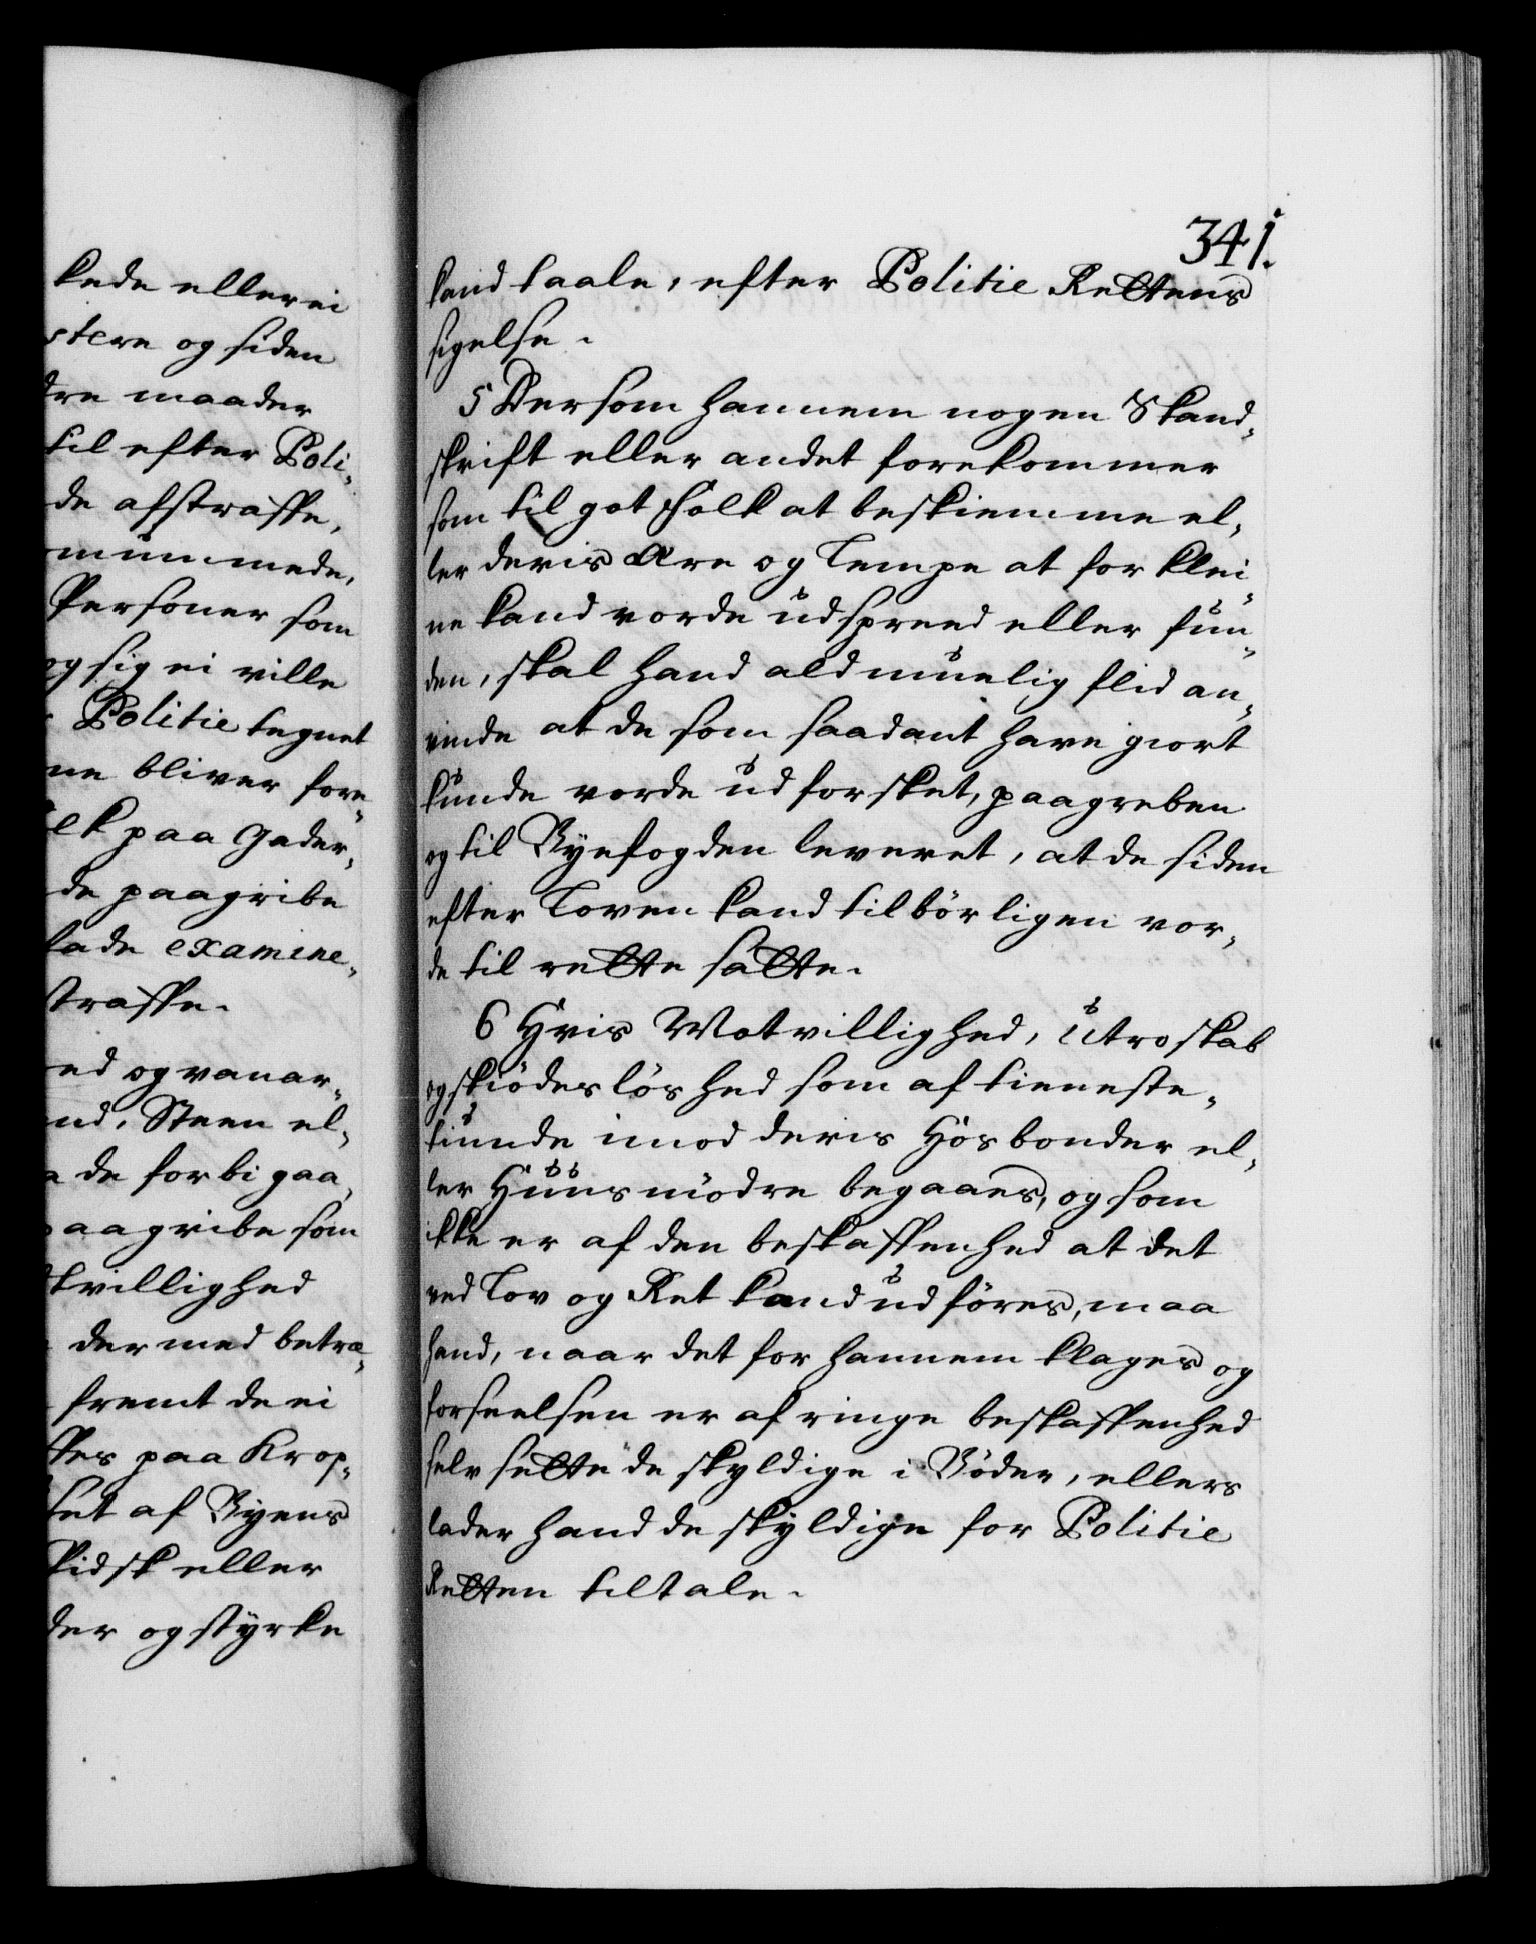 kede eller ei
stere og siden
dre maader
til efter Poli-
de afstraffe,
mummede,
Personer som
og sig ei ville
Politie tegnet
ne bliver fore
elk paa Gader,
de paagribe
lade examine-
straffe.
ed og vanar-
nd, Steen el-
de forbi gaa,
aagribe som
tvillighed
der med betræ-
fremt de ei
ffes paa Krop-
set af Byens
Pidsk eller
der og styrke
341.
kand taale, efter Politie Rettens
sigelse.
5 Dersom hannem nogen Skand-
skrift eller andet forekommer
som til got Folk at beskiemme el-
ler deris Ære og Lempe at for klei-
ne kand vorde udspreed eller fun-
den, skal hand ald muelig flid an-
vende at de som saadant have giort
kunde vorde udforsket, paagreben
og til Byefogden leveret, at de siden
efter Loven kand tilbörligen vor-
de til rette sätte.
6 Hvis Motvillighed, Utroskab
og skiödeslös hed som af tieneste-
tiunde imod deris Hosbonder el-
ler Huusmödre begaaes, og som
ikke er af den beskaffenhed at det
ved Lov og Ret kand udföres, maa
hand, naar det for hannem klages og
forseelsen er af ringe beskaffenhed
selv sette de skyldige i Böder, ellers
lader hand de skyldige for Politie
Retten tiltale.